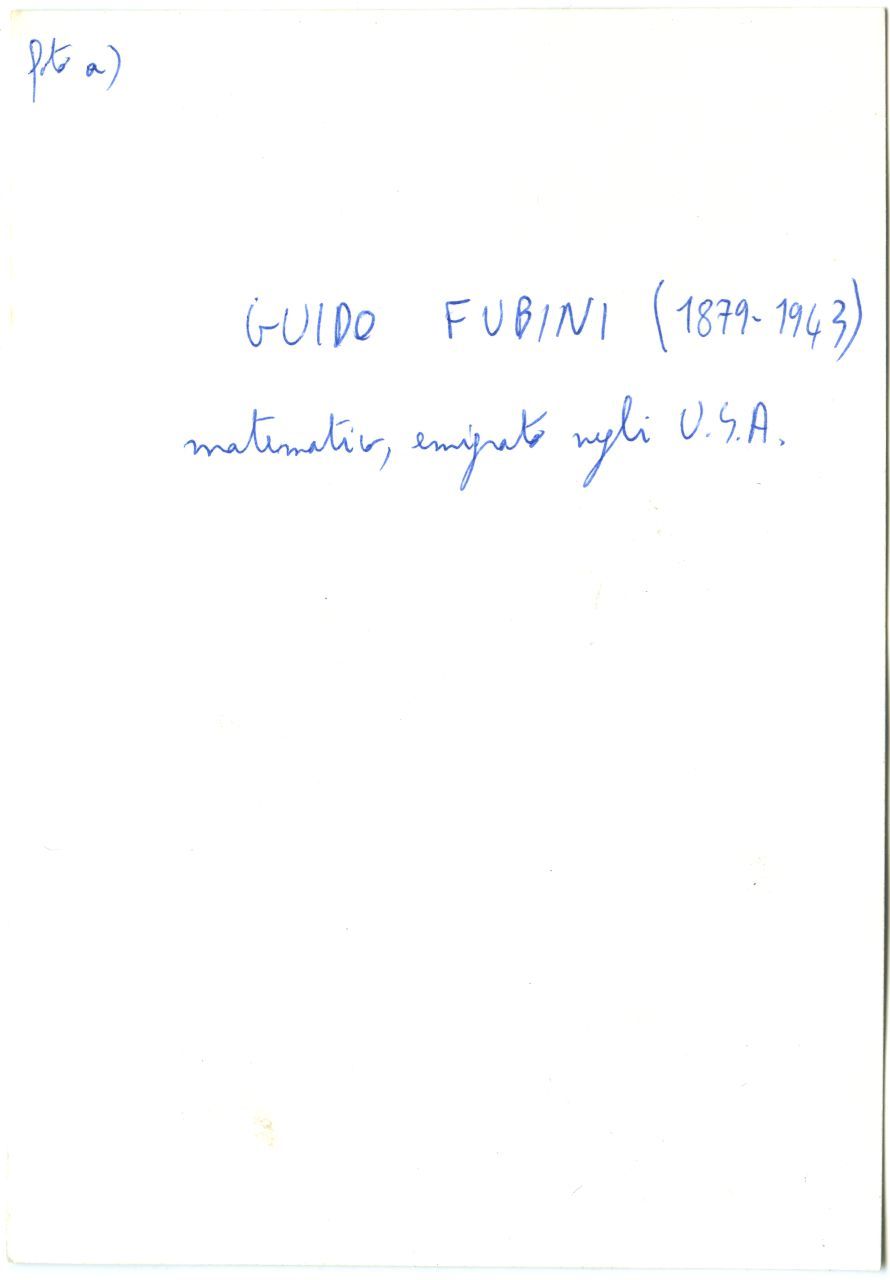 foto a)
GUIDO FUBINI (1879-1943)
matematico, emigrato negli U.S.A.